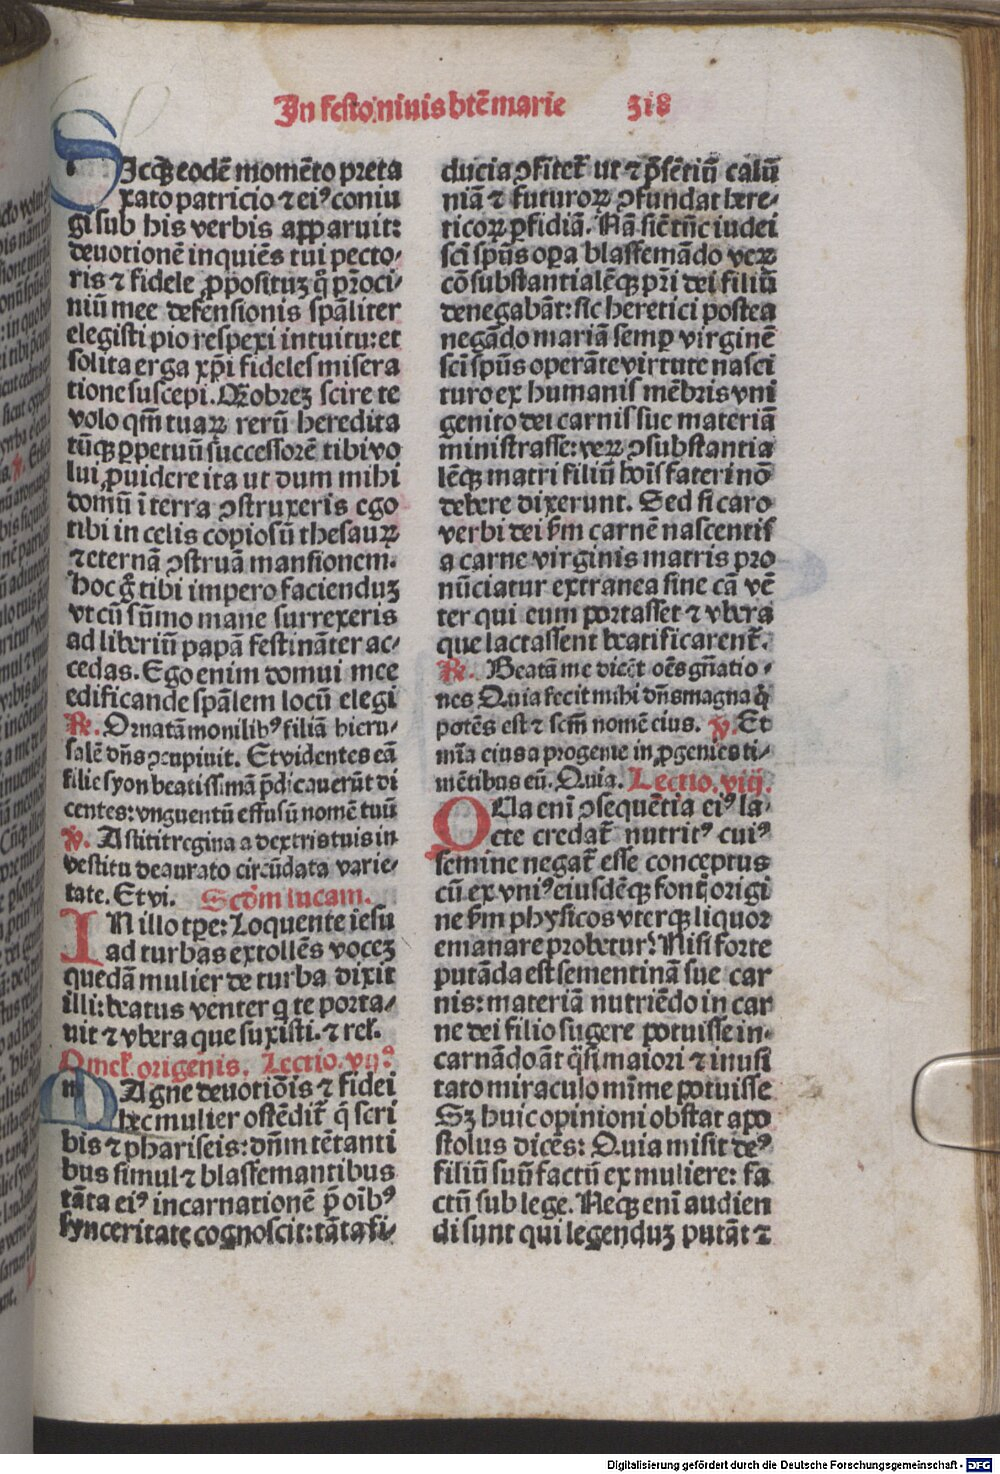 In festo niuis btē marie 318
SIcq̄ʒ eodē momēto preta
xato patricio ⁊ eiꝰ coniu
gi sub his verbis apparuit:
deuotionē inquiēs tui pecto⸗
ris ⁊ fidele ꝓposituʒ q̄ p̄roci⸗
niū mee defensionis spāliter
elegisti pio respexi intuitu: et
solita erga xp̄i fideles misera
tione suscepi. Q̄obreʒ scire te
volo qm̄ tuaꝝ rerū heredita
tūqʒ ꝑpetuū successorē tibi vo
lui ꝓuidere ita ut dum mihi
domū ī terra ꝯstruxeris ego
tibi in celis copiosū thesauꝝ
⁊ eternā ꝯstruā mansionem.
hoc g̊ tibi impero faciendūʒ
vt cū sūmo mane surrexeris
ad liberiū papā festināter ac⸗
cedas. Ego enim domui mee
edificande spālem locū elegi
℟. Ornatā monilibꝰ filiā hieru⸗
salē dn̄s ꝯcupiuit. Et videntes eā
filie syon beatissimā p̄dicauerūt di
centes: vnguentū effusū nomē tuū
℣. Astitit regina a dextris tuis in
vestitu deaurato circūdata varie⸗
tate. Et vi. Scd̄m lucam.
IN illo tpe: Loquente iesu
ad turbas extollēs voceʒ
quedā mulier de turba dixit
illi: beatus venter q te porta⸗
uit ⁊ vbera que suxisti. ⁊ rel̄.
Omel̄. origenis. Lectio. vijͦ
MAgne deuotiōis ⁊ fidei
hec mulier ostēdit̄ q̄ scri
bis ⁊ phariseis: dn̄m tētanti
bus simul ⁊ blasfemantibus
tāta eiꝰ incarnationē p̄ oībꝰ
synceritate cognoscit: tāta fi⸗
ducia ꝯfitet̄ ut ⁊ p̄sētiū calū
niā ⁊ futuroꝝ ꝯfundat here⸗
ticoꝝ ꝑfidiā. Nā sic̄ tūc iudei
sc̄i sp̄us oꝑa blasfemādo veꝝ
cōsubstantialēqʒ pr̄i dei filiū
denegabāt: sic heretici postea
negādo mariā semꝑ virginē
sc̄i sp̄us operāte virtute nasci
turo ex humanis mēbris vni
genito dei carnis sue materiā
ministrasse: veꝝ ꝯsubstantia
lēqʒ matri filiū hoīs fateri nō
debere dixerunt. Sed si caro
verbi dei ẜm carnē nascentis
a carne virginis matris pro
nūciatur extranea sine cā vē
ter qui eum portasset ⁊ vbera
que lactassent beatificarent̄.
℟. Beatā me dicēt oēs gn̄atio⸗
nes Quia fecit mihi dn̄s magna q̇
potēs est ⁊ scm̄ nomē eius. ℣. Et
mīa eius a progenie in ꝓgenies ti⸗
mētibus eū. Quia. Lectio. viij.
QUia enī ꝯsequētia eiꝰ la⸗
cte credat̄ nutritꝰ cuiꝰ
semine negat̄ esse conceptus
cū ex vniꝰ eiusdēqʒ fontꝭ origi
ne ẜm physicos vterqʒ liquor
emanare probetur? Nisi forte
putāda est sementinā sue car
nis: materiā nutriēdo in car
ne dei filio sugere potuisse in⸗
carnādo āt q̄si maiori ⁊ inusi
tato miraculo mīme potuisse
Sʒ huic opinioni obstat apo
stolus dicēs: Quia misit deꝰ
filiū suū factū ex muliere: fa
ctū sub lege. Neqʒ enī audien
di sunt qui legenduʒ putāt ⁊
Digitalisierung gefördert durch die Deutsche Forschungsgemeinschaft - DFG